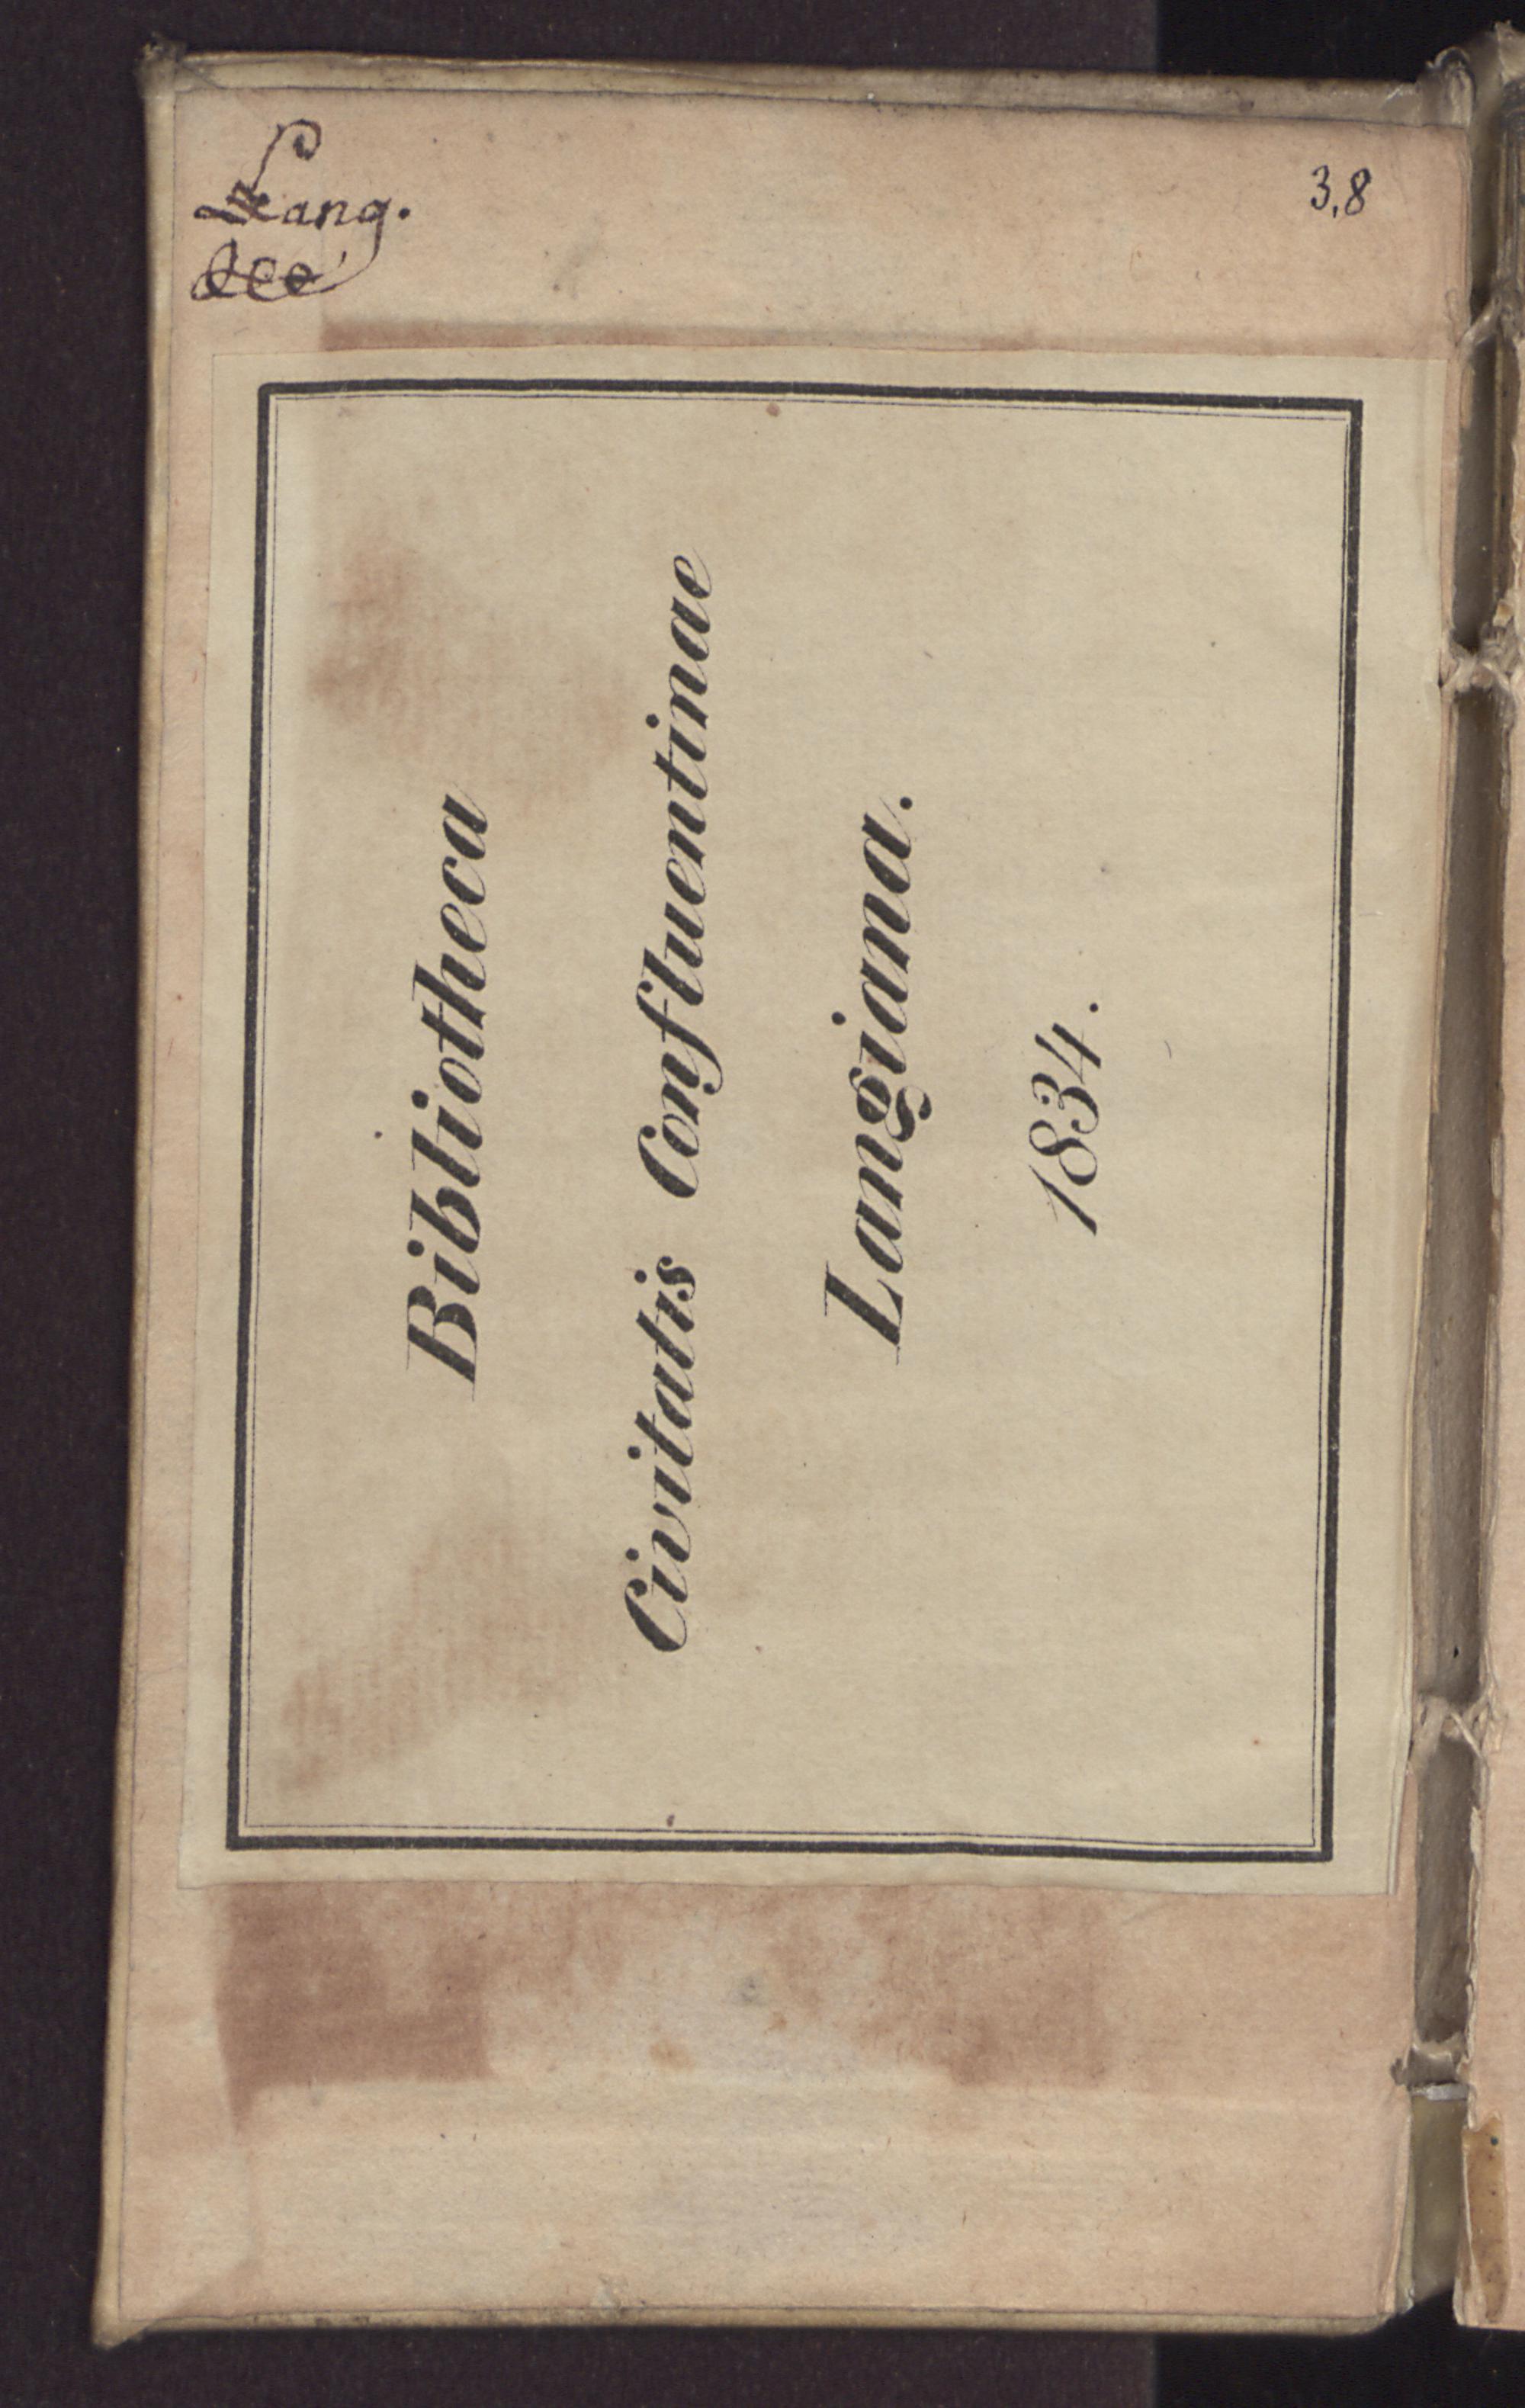 Lang.
3,8
Bibliotheca
Civitatis Confluentinae
Langiana.
1834.